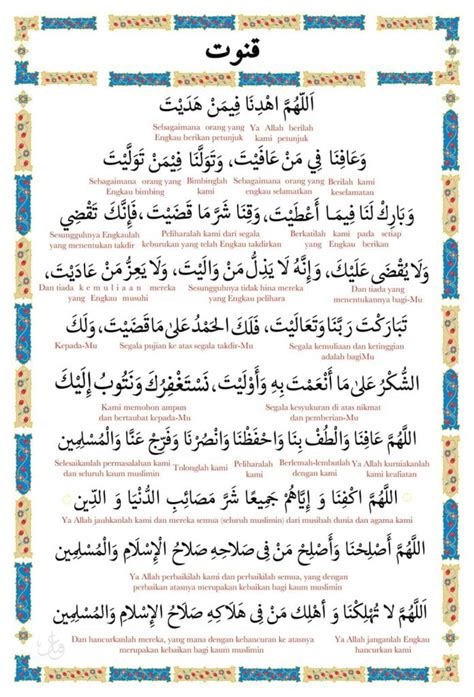 قنوت
اَللّٰهُمَّ اهْدِنَا فِيمَنْ هَدَيْتَ
Sebagaimana orang yang Ya Allah berilah
Engkau berikan petunjuk kami petunjuk
وَعَافِنَا فِي مَنْ عَافَيْتَ، وَتَوَلَّنَا فِيْمَنْ تَوَلَّيْتَ
Sebagaimana orang yang Bimbinglah Sebagaimana orang yang Berilah kami
Engkau bimbing kami engkau selamatkan keselamatan
وَبَارِكْ لَنَا فِيمَا أَعْطَيْتَ، وَقِنَا شَرَّ مَا قَضَيْتَ، فَإِنَّكَ تَقْضِي
Sesungguhnya Engkaulah Peliharalah kami dari segala Berkatilah kami pada setiap
yang menentukan takdir keburukan yang telah Engkau takdirkan yang Engkau berikan
وَلَا يُقْضَى عَلَيْكَ، وَإِنَّهُ لَا يَذِلُّ مَنْ وَالَيْتَ، وَلَا يَعِزُّ مَنْ عَادَيْتَ،
Dan tiada kemuliaan mereka Sesungguhnya tidak hina mereka Dan tiada yang
yang Engkau musuhi yang Engkau pelihara menentukannya bagi-Mu
تَبَارَكْتَ رَبَّنَا وَتَعَالَيْتَ، فَلَكَ الْحَمْدُ عَلٰى مَا قَضَيْتَ، وَلَكَ
Kepada-Mu Segala pujian ke atas segala takdir-Mu Segala kemuliaan dan ketinggian
adalah bagiMu
الشُّكْرُ عَلٰى مَا أَنْعَمْتَ بِهِ وَأَوْلَيْتَ، نَسْتَغْفِرُكَ وَنَتُوبُ إِلَيْكَ
Kami memohon ampun Segala kesyukuran di atas nikmat
dan bertaubat kepada-Mu dan pemberian-Mu
اللَّهُمَّ عَافِنَا وَالْطُفْ بِنَا وَاحْفَظْنَا وَانْصُرْنَا وَفَرِّجْ عَنَّا وَالْمُسْلِمِين
Selesaikanlah permasalahan kami Tolonglah kami Peliharalah Berlemah-lembutlah Ya Allah kurniakanlah
dan seluruh kaum muslimin kami dengan kami kami keafiatan
اللَّهُمَّ اكْفِنَا وَ إِيَّاهُمْ جَمِيعًا شَرَّ مَصَائِبِ الدُّنْيَا وَ الدِّين
Ya Allah jauhkanlah kami dan mereka semua (seluruh muslimin) dari musibah dunia dan agama kami
اللَّهُمَّ أَصْلِحْنَا وَأَصْلِحْ مَنْ فِى صَلَاحِهِ صَلَاحُ الْإِسْلَامِ وَالْمُسْلِمِين
Ya Allah perbaikilah kami dan perbaikilah semua, yang dengan
perbaikan atasnya merupakan kebaikan bagi kaum muslimin
اللَّهُمَّ لَا تُهْلِكْنَا وَ أَهْلِكْ مَنْ فِى هَلَاكِهِ صَلَاحُ الْإِسْلَامِ وَالْمُسْلِمِين
Dan hancurkanlah mereka, yang mana dengan kehancuran ke atasnya Ya Allah janganlah Engkau
merupakan kebaikan bagi kaum muslimin hancurkan kami